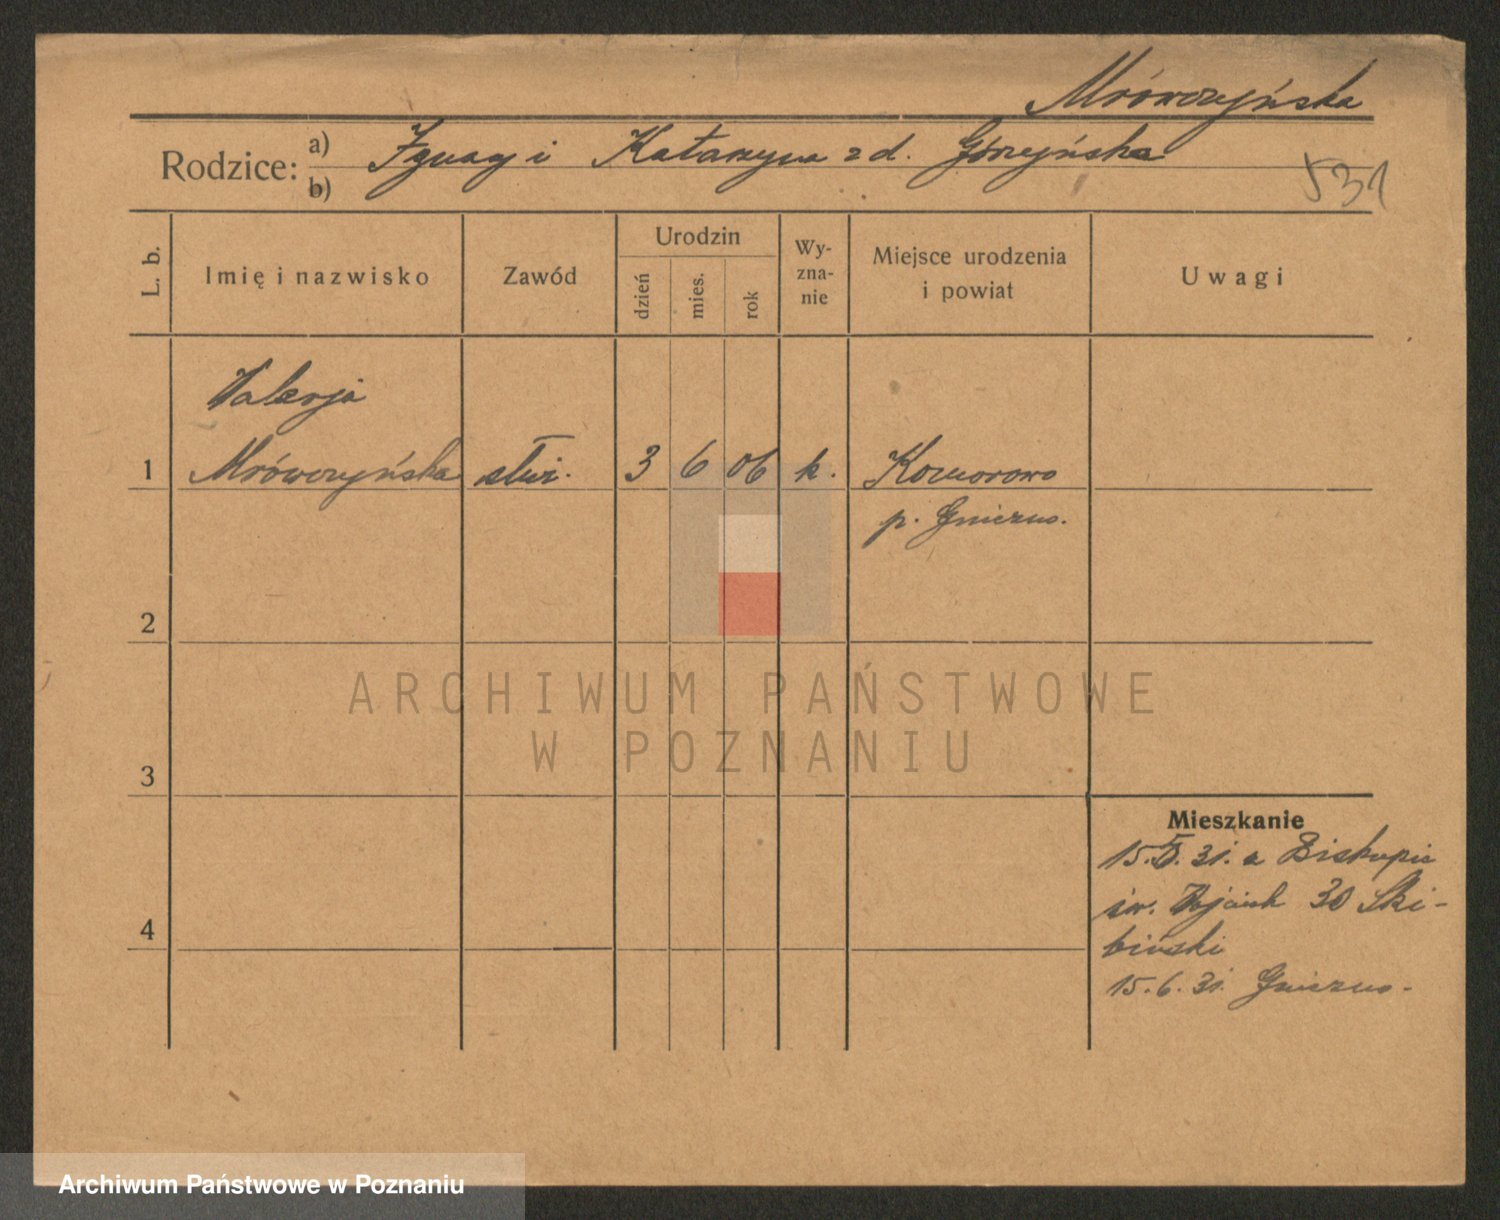 Mrówczyńska
Rodzice: a) Ignacy i Katarzyna z d. Górzyńska
b)
531
L. b.
Imię i nazwisko
Zawód
Urodzin
dzień
mies.
rok
Wy-
zna-
nie
Miejsce urodzenia
i powiat
Uwagi
Walerja
1 Mrówczyńska służ. 3 6 06 k. Komorowo
p. Gniezno.
2
3
4
Mieszkanie
15.5.31. z Biskupic
św. Wojciech 30 Ski-
biński
15.6.31. Gniezno.
ARCHIWUM PAŃSTWOWE
W POZNANIU
Archiwum Państwowe w Poznaniu